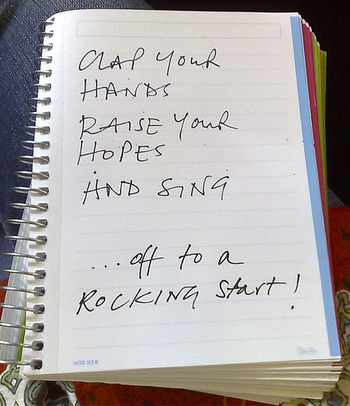 CLAP YOUR
HANDS
RAISE YOUR
HOPES
AND SING
...off to a
ROCKING start!
NOTE BOOK